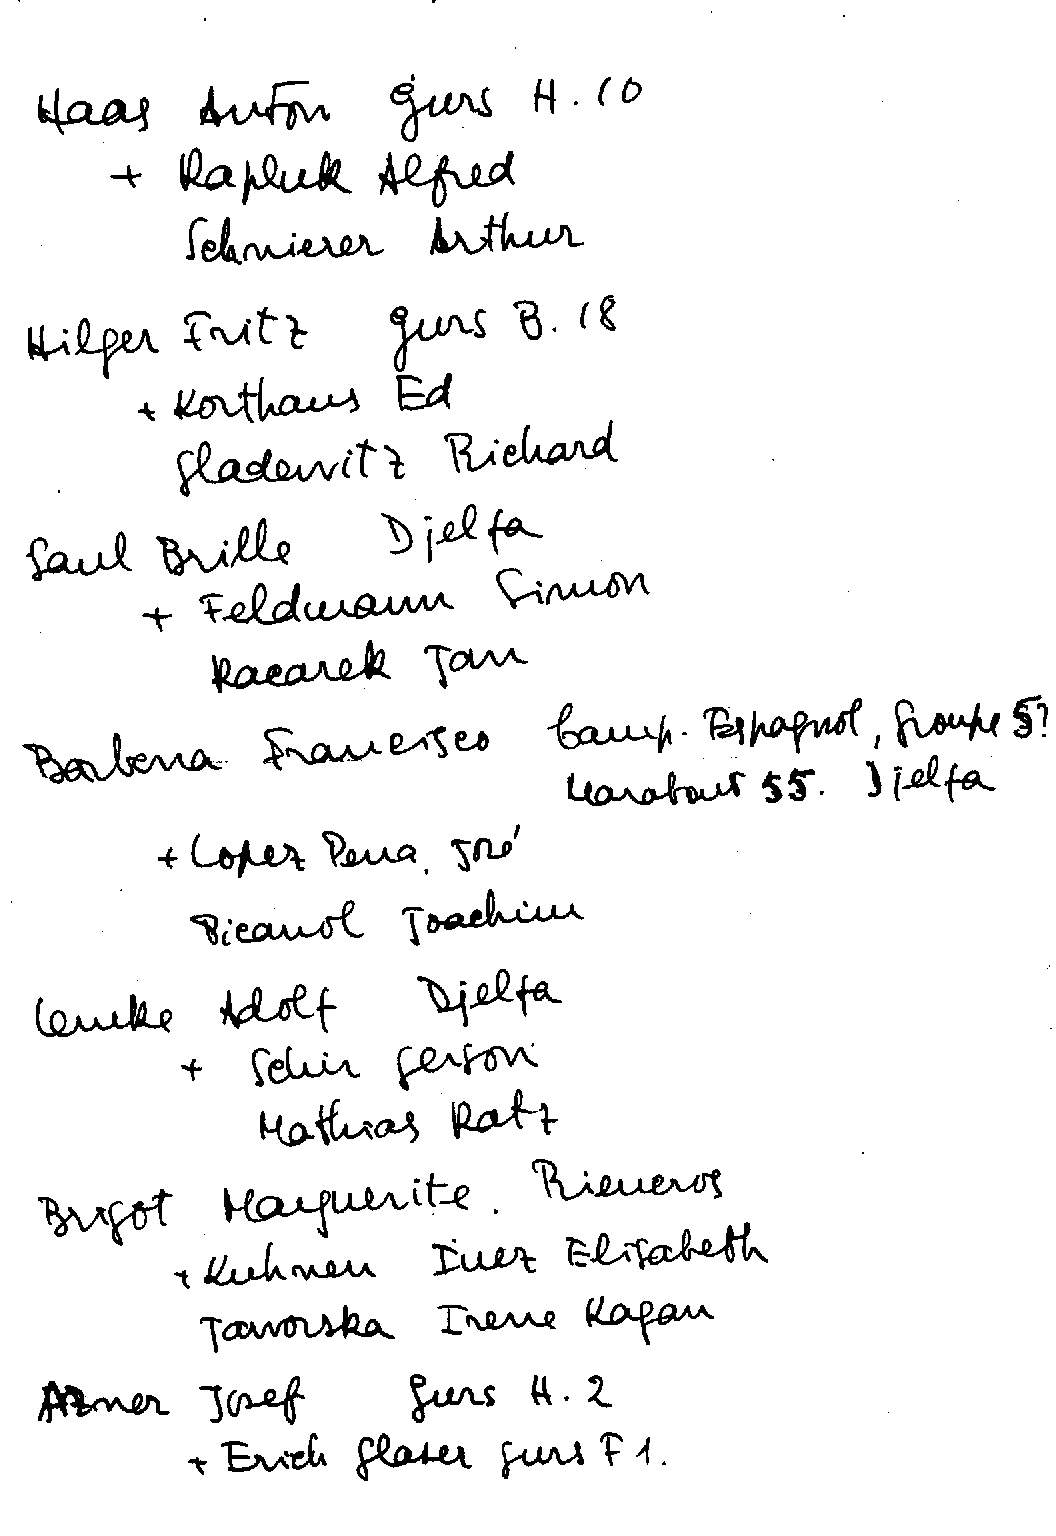 Haas Anton Gurs H. 10
+ Rapluk Alfred
Schnierer Arthur
Hilger Fritz Gurs B. 18
+ Korthaus Ed
Gladewitz Richard
Saul Brille Djelfa
+ Feldmann Simon
Kacarek Jan
Barbena Francisco Camp. Espagnol, Groupe 5?
Marabout 55. Djelfa
+ Lopez Pena, José
Picanol Joachim
Lemke Adolf Djelfa
+ Schir Gerson
Mathias Ratz
Brigot Marguerite. Rieucros
+ Kuhnen Inez Elisabeth
Jaworska Irene Kagan
Azner Josef Gurs H. 2
+ Erich Glaser Gurs F 1.